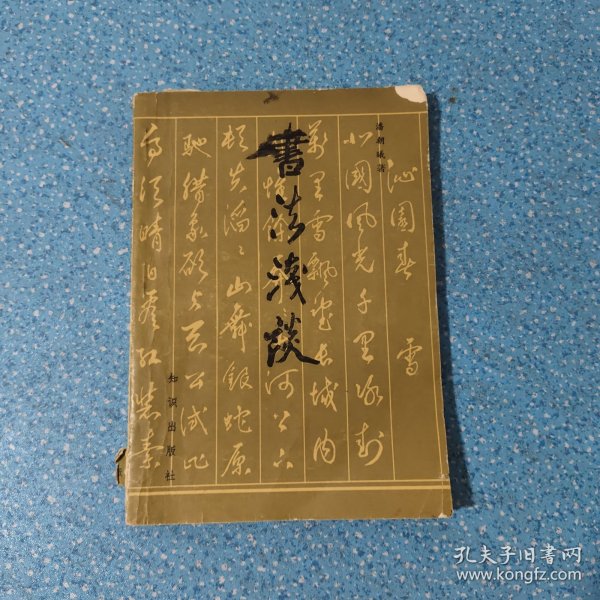 潘朝曦著
書法淺談
沁園春 雪
北國風光千里冰封
萬里雪飄望長城内
惟餘
河上下
頓失滔〻山舞銀蛇原
馳臘象欲与天公試比
高須晴日看紅裝素
知识出版社
孔夫子旧书网
www.kongfz.com